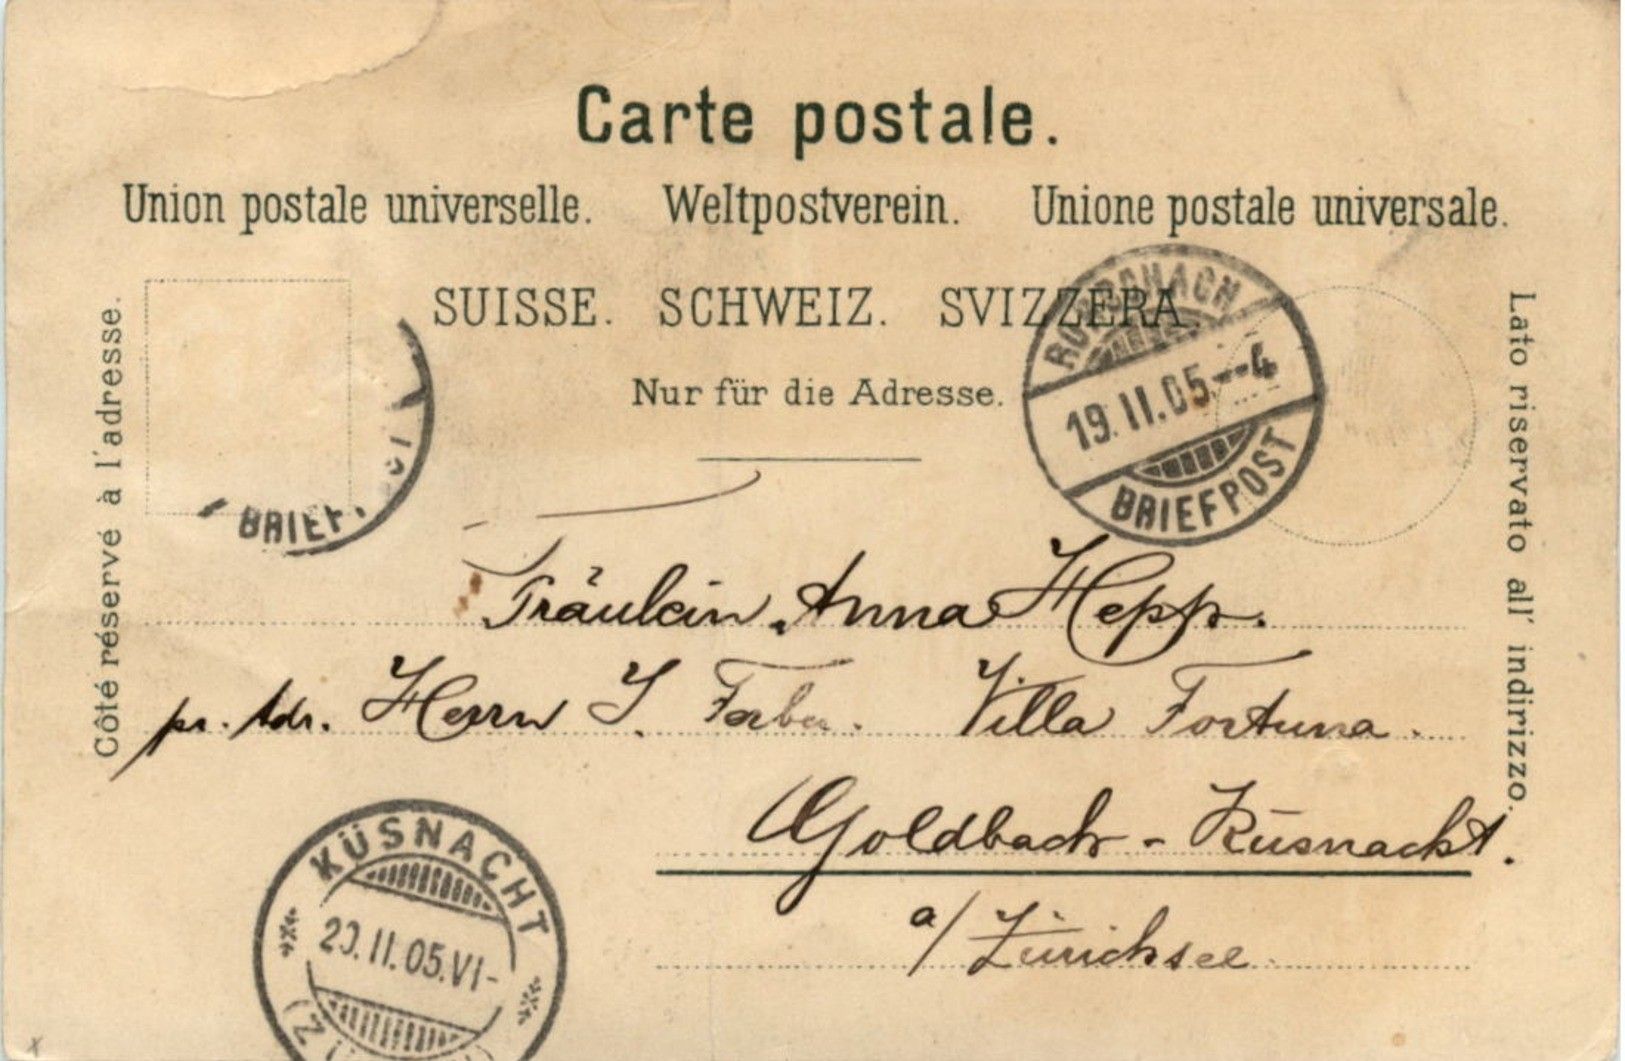 Carte postale.
Union postale universelle. Weltpostverein. Unione postale universale.
SUISSE. SCHWEIZ. SVIZZERA.
Nur für die Adresse.
Côté réservé à l'adresse.
Lato riservato all' indirizzo.
19.II.05.--4
BRIEFPOST
BRIEF
Fräulein Anna Hepp.
pr. Adr. Herrn J. Farber. Villa Fortuna.
Goldbach - Küsnacht.
a/Zürichsee
KÜSNACHT
20.II.05.VI-